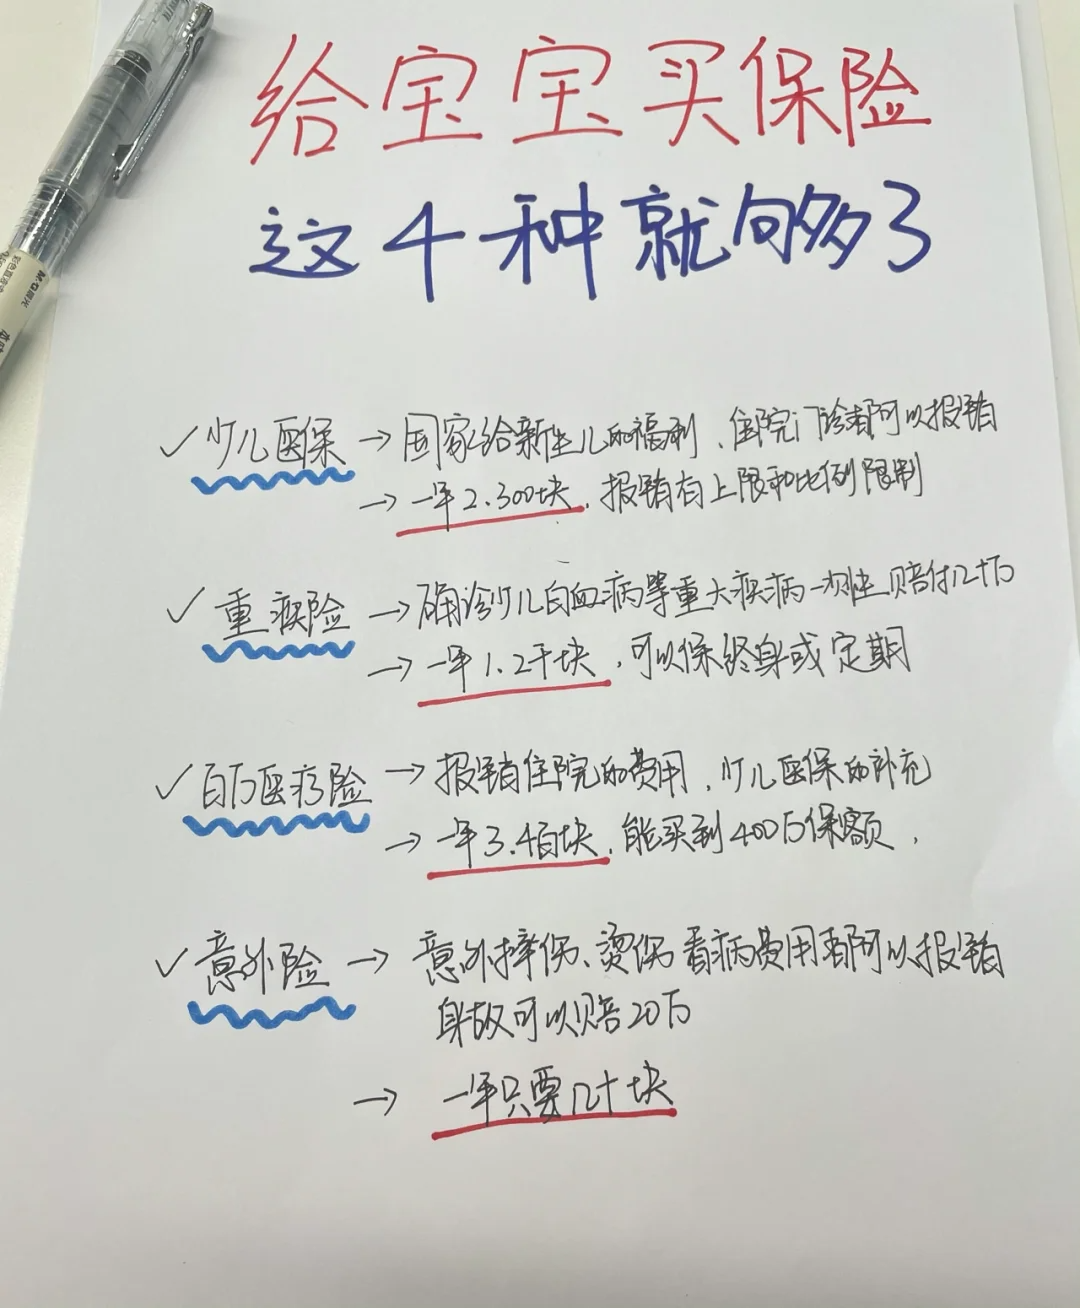 给宝宝买保险
这4种就够了
✓少儿医保→国家给新生儿的福利、住院门诊都可以报销
→一年2.300块,报销有上限和比例限制
✓重疾险→确诊少儿白血病等重大疾病一次性赔付几十万
→一年1.2千块,可以保终身或定期
✓百万医疗险→报销住院的费用,少儿医保的补充
→一年3.4百块,能买到400万保额,
✓意外险→意外摔伤、烫伤看病费用都可以报销
身故可以赔20万
→一年只要几十块
M&G晨光